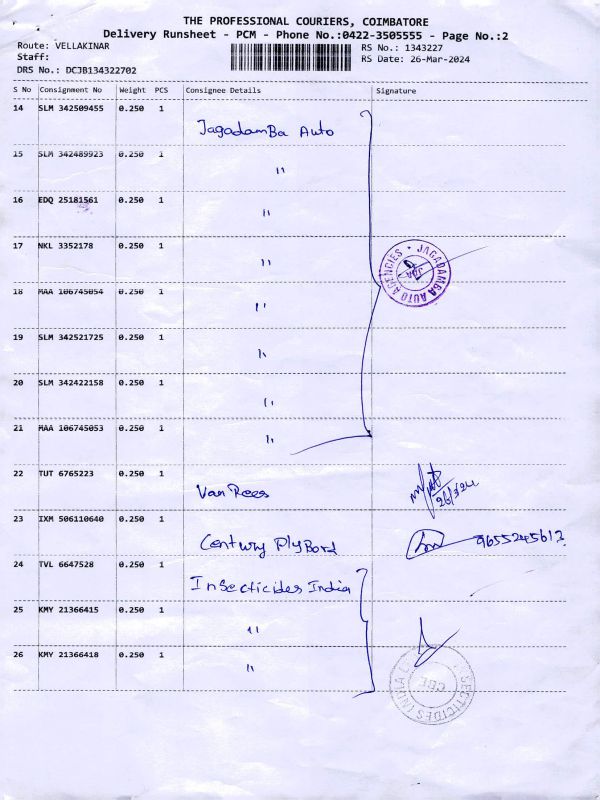 THE PROFESSIONAL COURIERS, COIMBATORE
Delivery Runsheet - PCM - Phone No.:0422-3505555 - Page No.:2
Route: VELLAKINAR
RS No.: 1343227
Staff:
RS Date: 26-Mar-2024
DRS No.: DCJB134322702
S No Consignment No Weight PCS Consignee Details Signature
14 SLM 342509455 0.250 1 JagadamBa Auto
15 SLM 342489923 0.250 1 "
16 EDQ 25181561 0.250 1 "
17 NKL 3352178 0.250 1 "
JAGADAMBA AUTO AGENCIES
18 MAA 106745054 0.250 1 "
19 SLM 342521725 0.250 1 "
20 SLM 342422158 0.250 1 "
21 MAA 106745053 0.250 1 "
22 TUT 6765223 0.250 1 Van Rees 26/3/24
23 IXM 506110640 0.250 1 Century PlyBord 9655245612
24 TVL 6647528 0.250 1 Insecticides India
25 KMY 21366415 0.250 1 "
26 KMY 21366418 0.250 1 "
SECTICIDES INDIA L
CBE